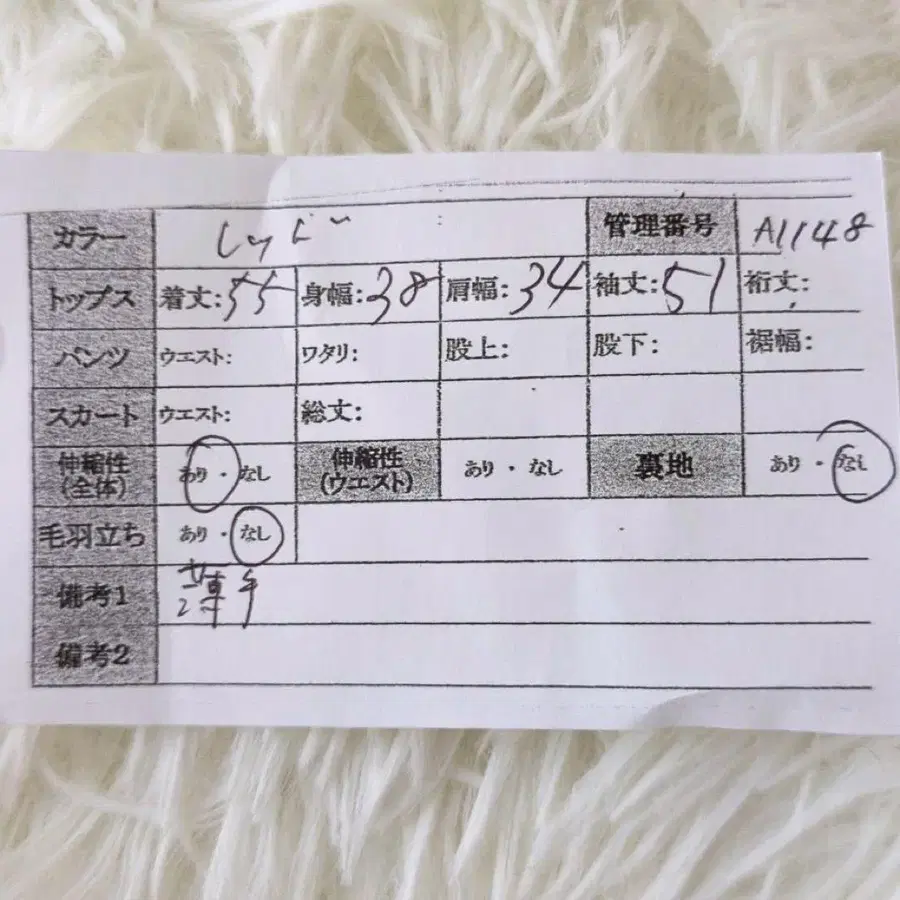 カラー レッド 管理番号 A1148
トップス 着丈:55 身幅:38 肩幅:34 袖丈:51 裄丈:
パンツ ウエスト: ワタリ: 股上: 股下: 裾幅:
スカート ウエスト: 総丈:
伸縮性(全体) あり・なし 伸縮性(ウエスト) あり・なし 裏地 あり・なし
毛羽立ち あり・なし
備考1 薄手
備考2